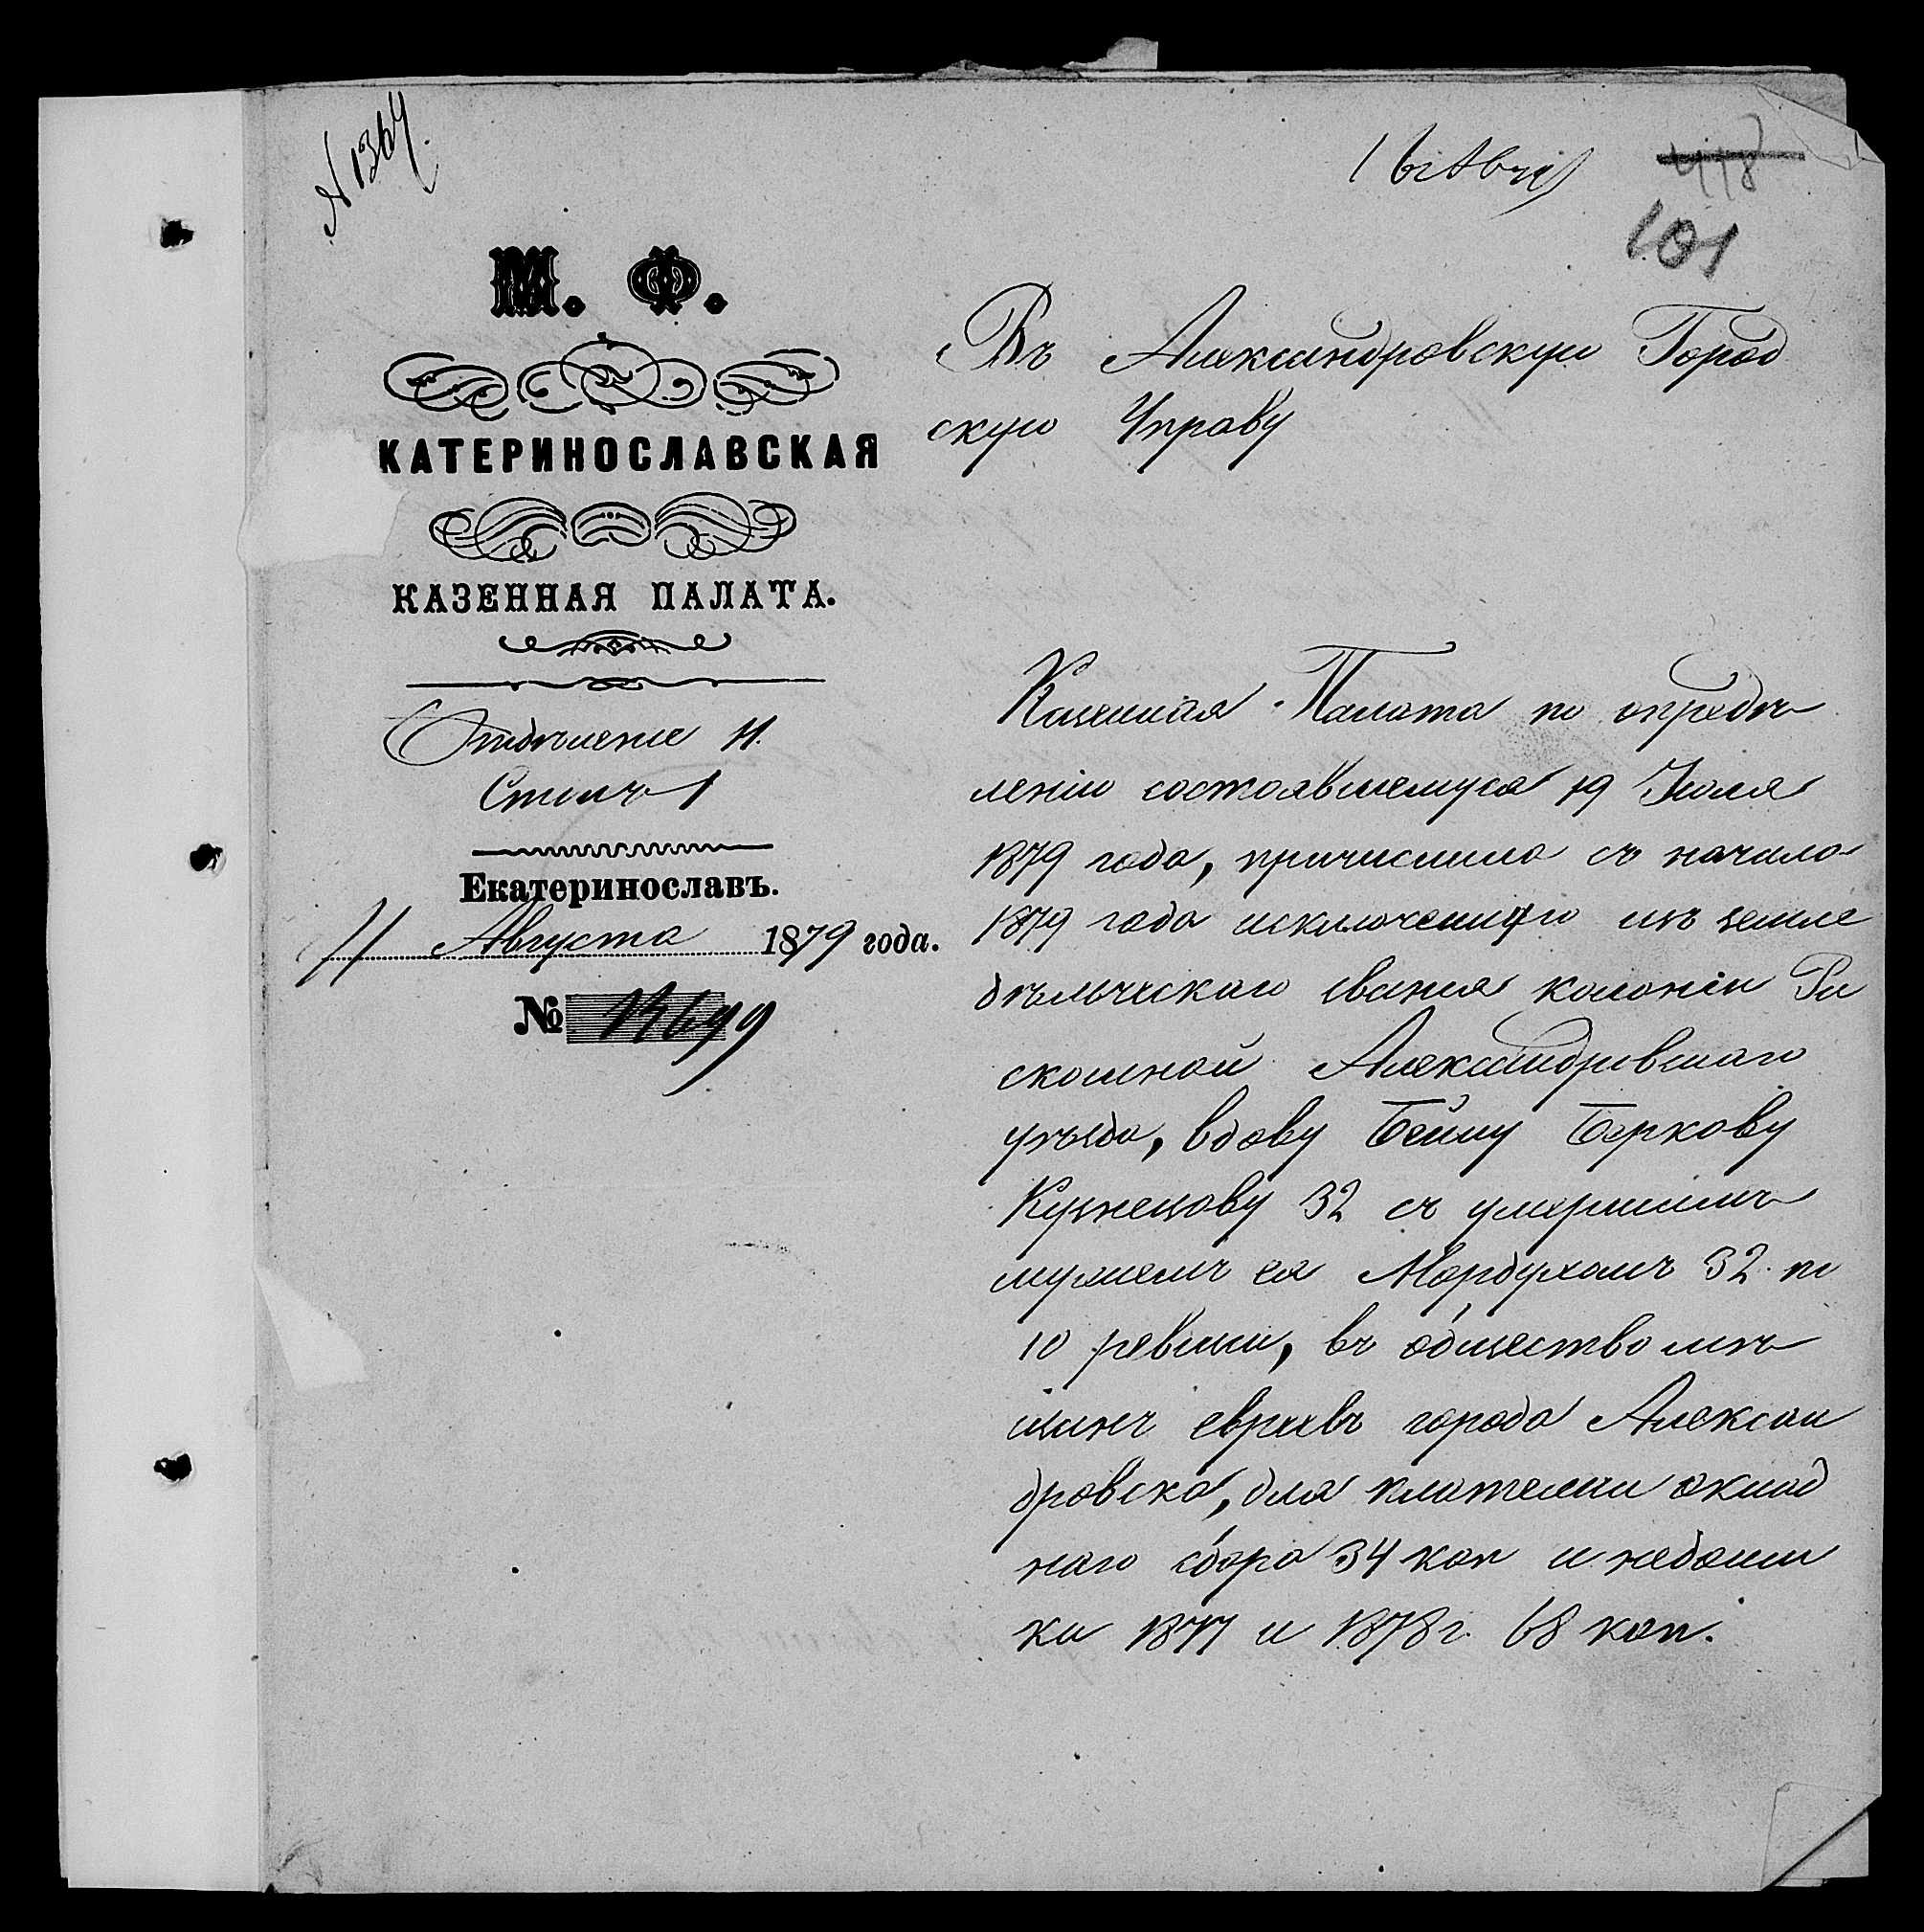 N 1364.
16 Авг
418
101
М. Ф.
КАТЕРИНОСЛАВСКАЯ
КАЗЕННАЯ ПАЛАТА.
Отдѣленіе II.
Столъ 1
Екатеринославъ.
11 Августа 1879 года.
№ 13699
Въ Александровскую Город
скую Управу
Казенная Палата по опредѣ
ленію состоявшемуся 19 Іюля
1879 года, причислила съ начала
1879 года исключенную изъ земле
дѣльческаго званія колоніи Ро
скошной Александровскаго
уѣзда, вдову Бейлу Беркову
Кузнецову 32 съ умершимъ
мужемъ ея Мордухомъ 32 по
10 ревизіи, въ общество мѣ
щанъ евреевъ города Алексан
дровска, для платежа оклад
наго сбора 34 коп и недоим
ки 1877 и 1878 г. 68 коп.